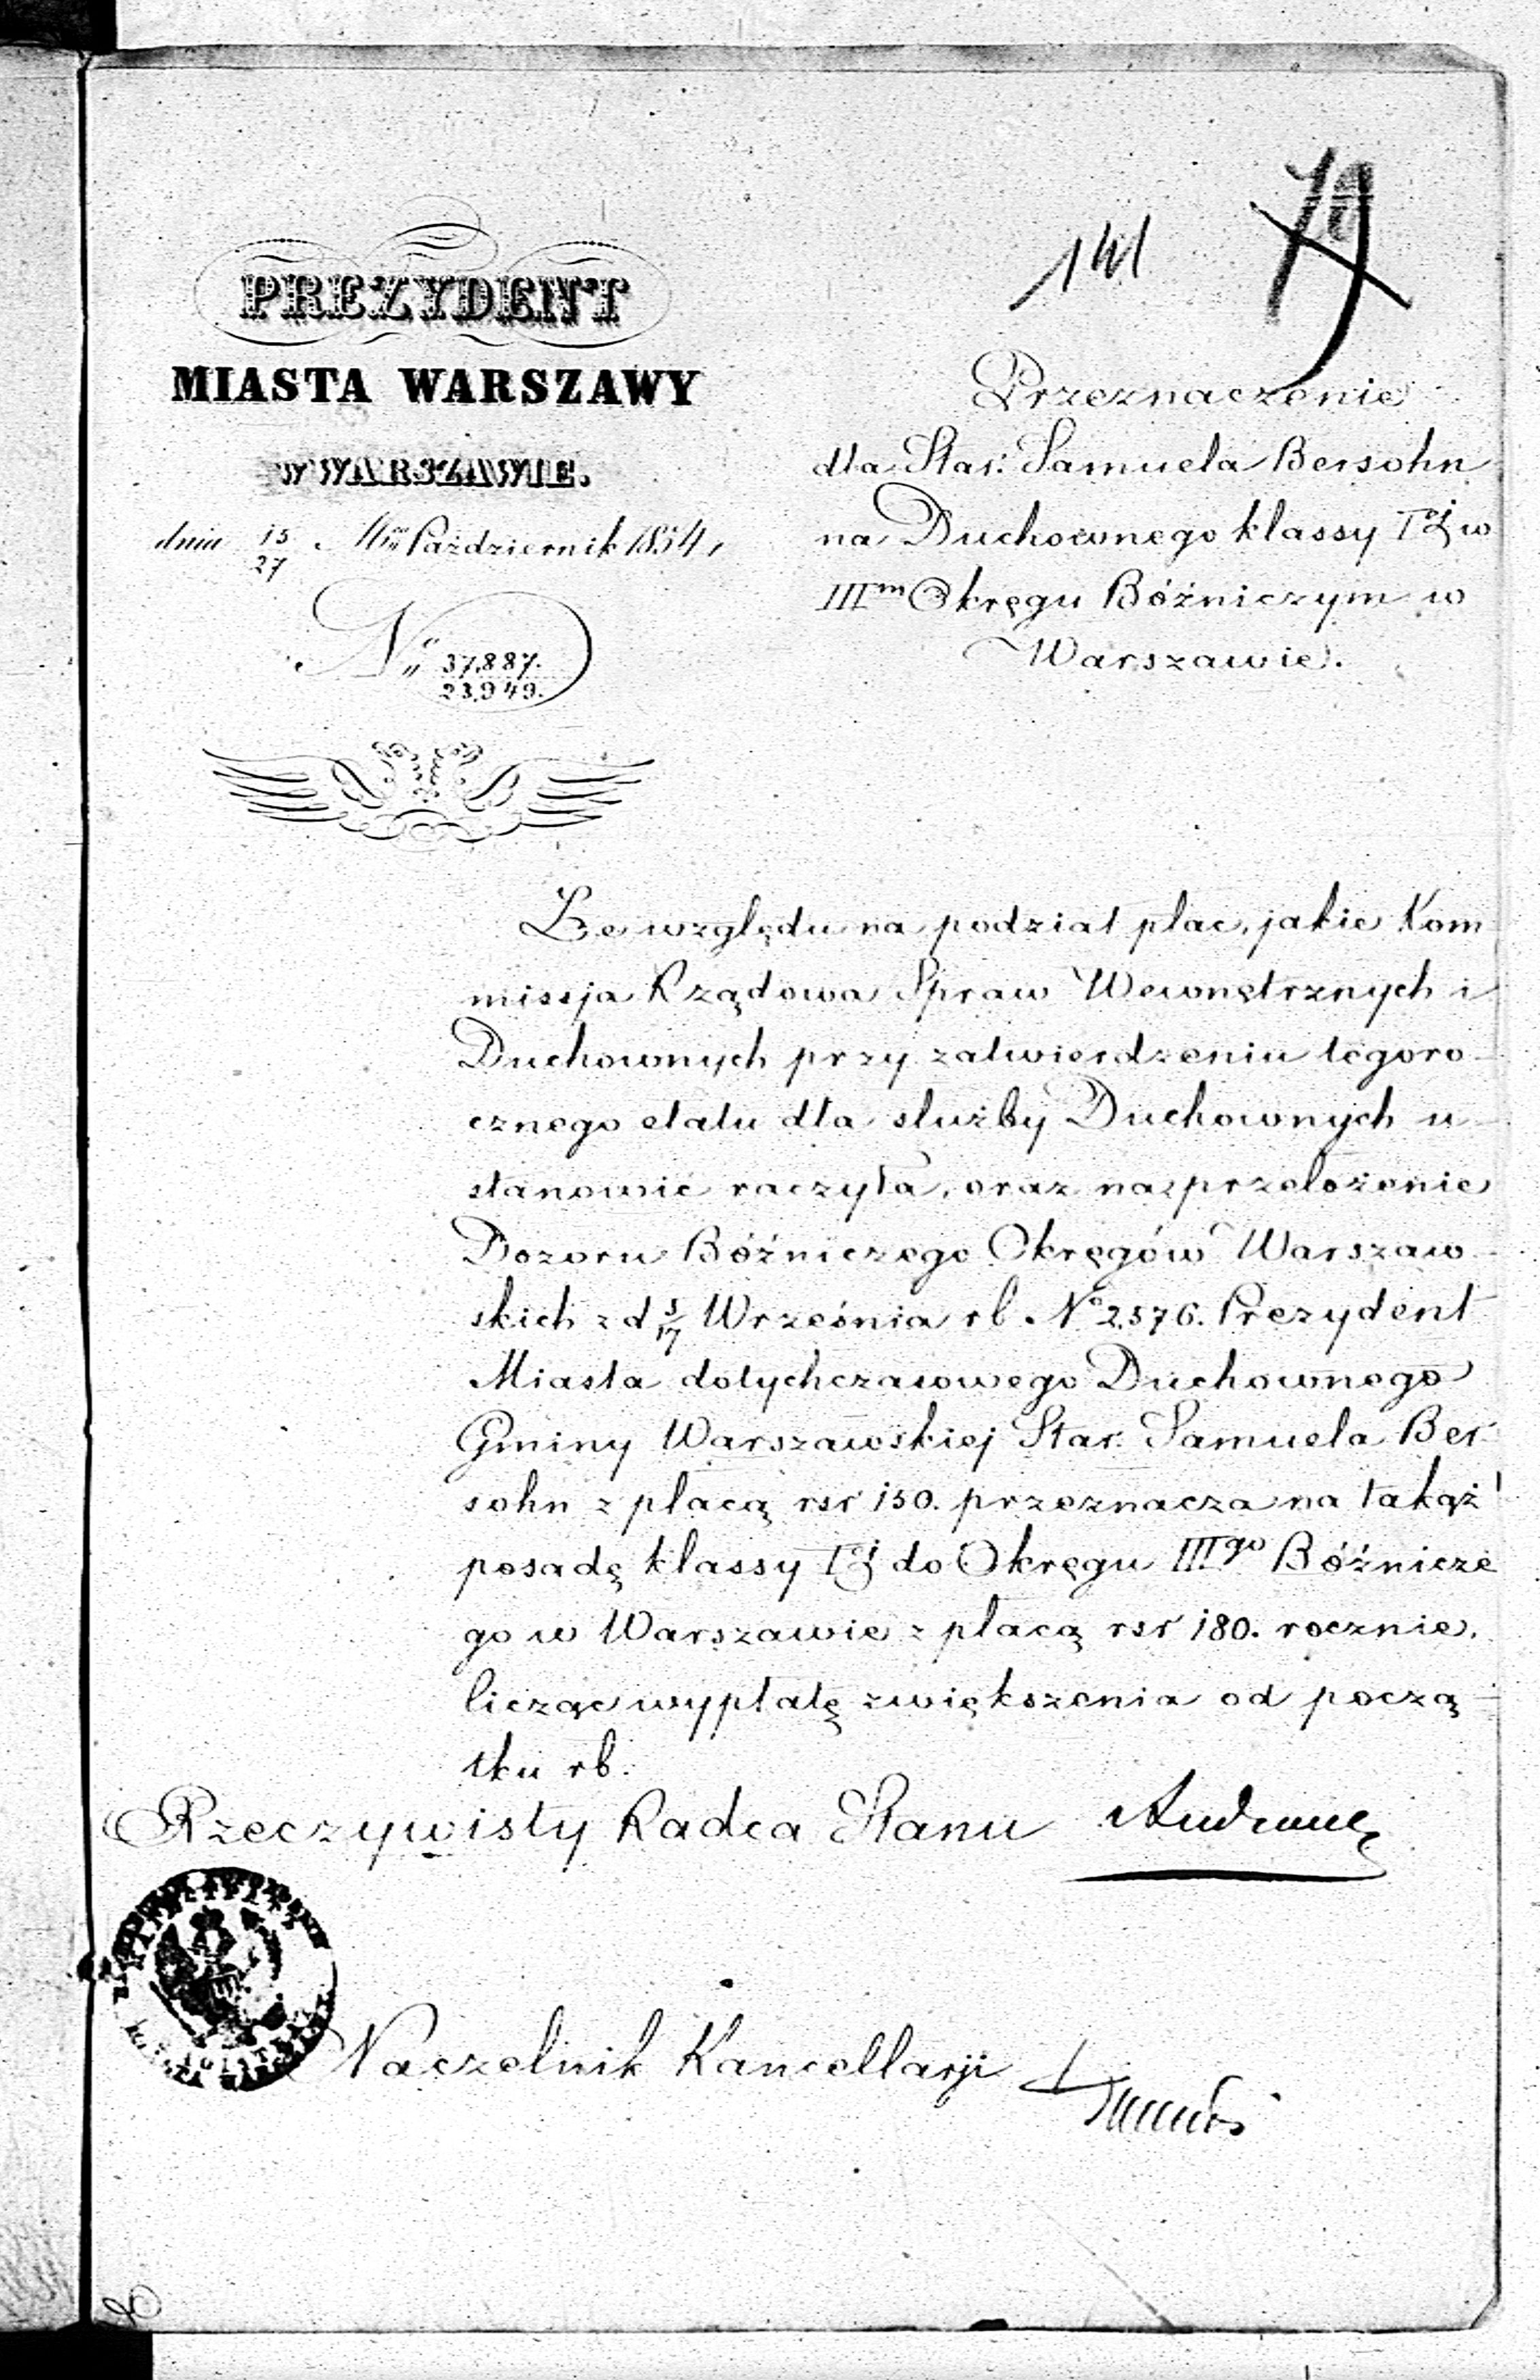 141 79
PREZYDENT
MIASTA WARSZAWY
w WARSZAWIE.
dnia 15/27 Mca Październik 1854,
No 37,887./23,949.
Przeznaczenie
dla Star: Samuela Bersohn
na Duchownego klassy Iej w
IIIm Okręgu Bóźniczym w
Warszawie.
Ze względu na podział płac, jakie Kom
missja Rządowa Spraw Wewnętrznych i
Duchownych przy zatwierdzeniu tegoro-
cznego etatu dla służby Duchownych u-
stanowić raczyła, oraz na przełożenie
Dozoru Bóźniczego Okręgów Warszaw-
skich z d 5/17 Września rb. No 2,576. Prezydent
Miasta dotychczasowego Duchownego
Gminy Warszawskiej Star: Samuela Ber-
sohn z płacą rsr 150. przeznacza na takąż
posadę klassy Iej do Okręgu IIIgo Bóźnicze
go w Warszawie z płacą rsr 180. rocznie,
licząc wypłatę zwiększenia od począ-
tku rb.
Rzeczywisty Radca Stanu
Naczelnik Kancellarji